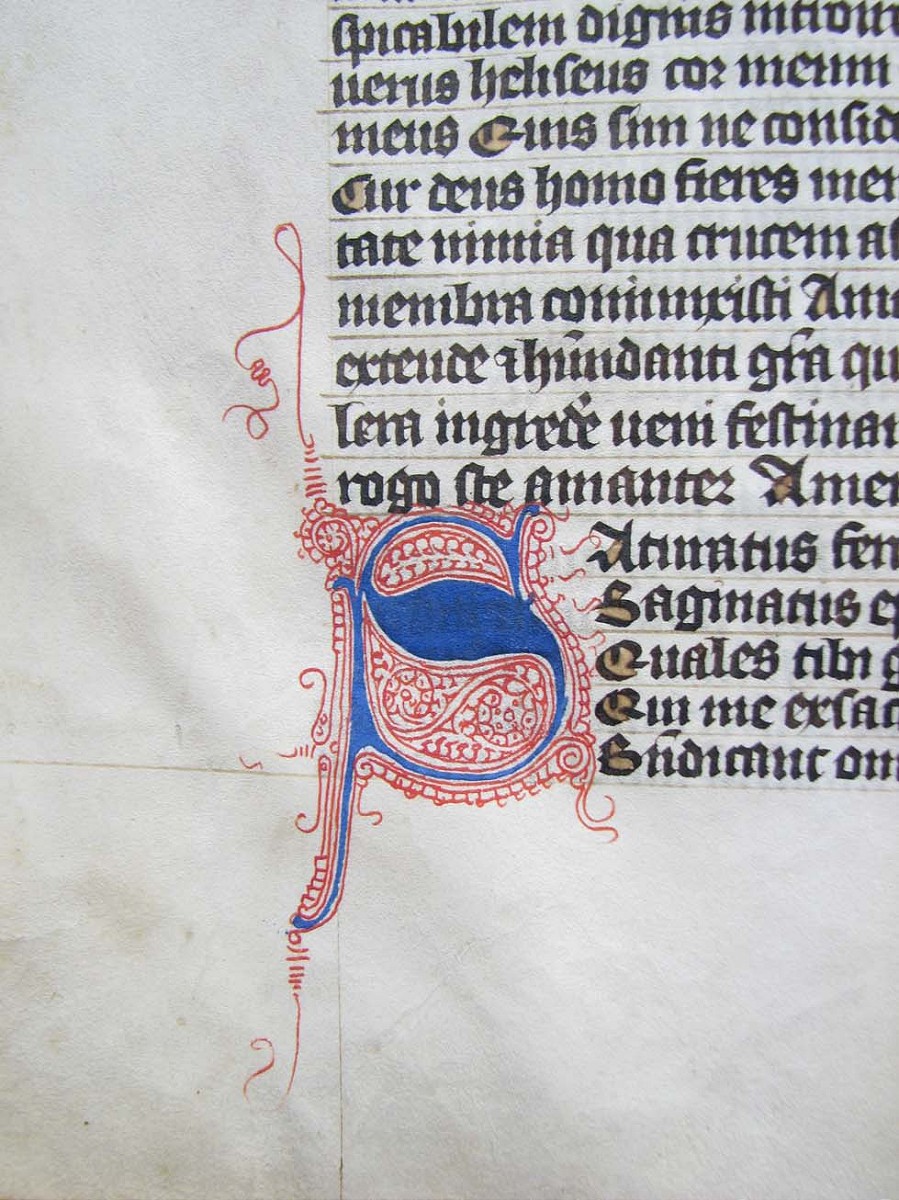 spicabilem dignus introire
uerus heliseus cor meum
meus Quis sim ne consid
Cur deus homo fieres mer
tate nimia qua crucem as
membra coniunxisti Amu
extende hundanti gra qu
lera ingrede ueni festinan
rogo ste amanter Amen
S Aturatus ferc
Saginatus ep
Quales tibi g
Qui me exsac
Sindicant om